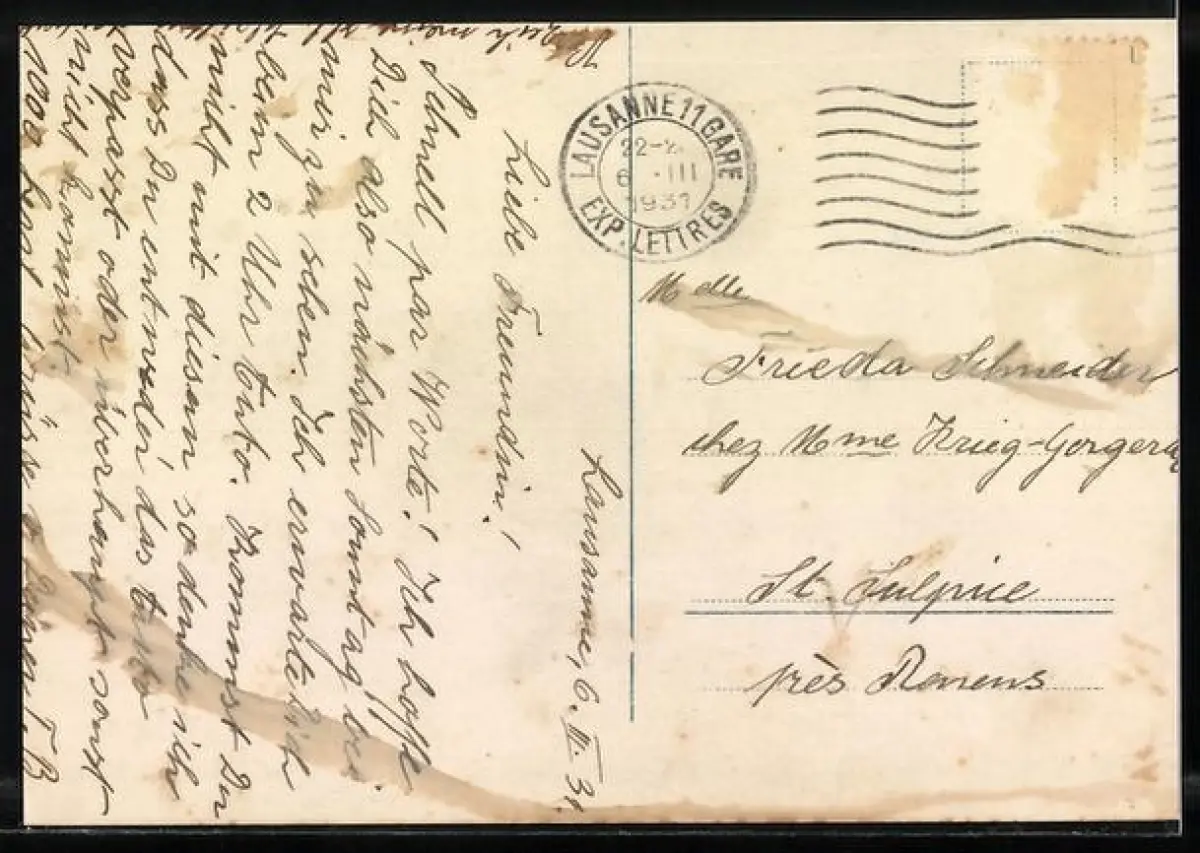 Lausanne, 6. III. 31.
Liebe Freundin!
Schnell par Worte! Ich hoffe
Dich also nächsten Sonntag bei
mir zu sehen. Ich erwarte Dich
beim 2 Uhr Tuto. Kommst Du
nicht mit diesem so denke ich
dass Du entweder das Tuto
verpasst oder überhaupt sonst
nicht kommst.
LAUSANNE 11 GARE
22-
6. III
1931
EXP. LETTRES
Melle
Frieda Schneider
chez Mme Krieg-Gorgerat
St. Sulpice
près Renens